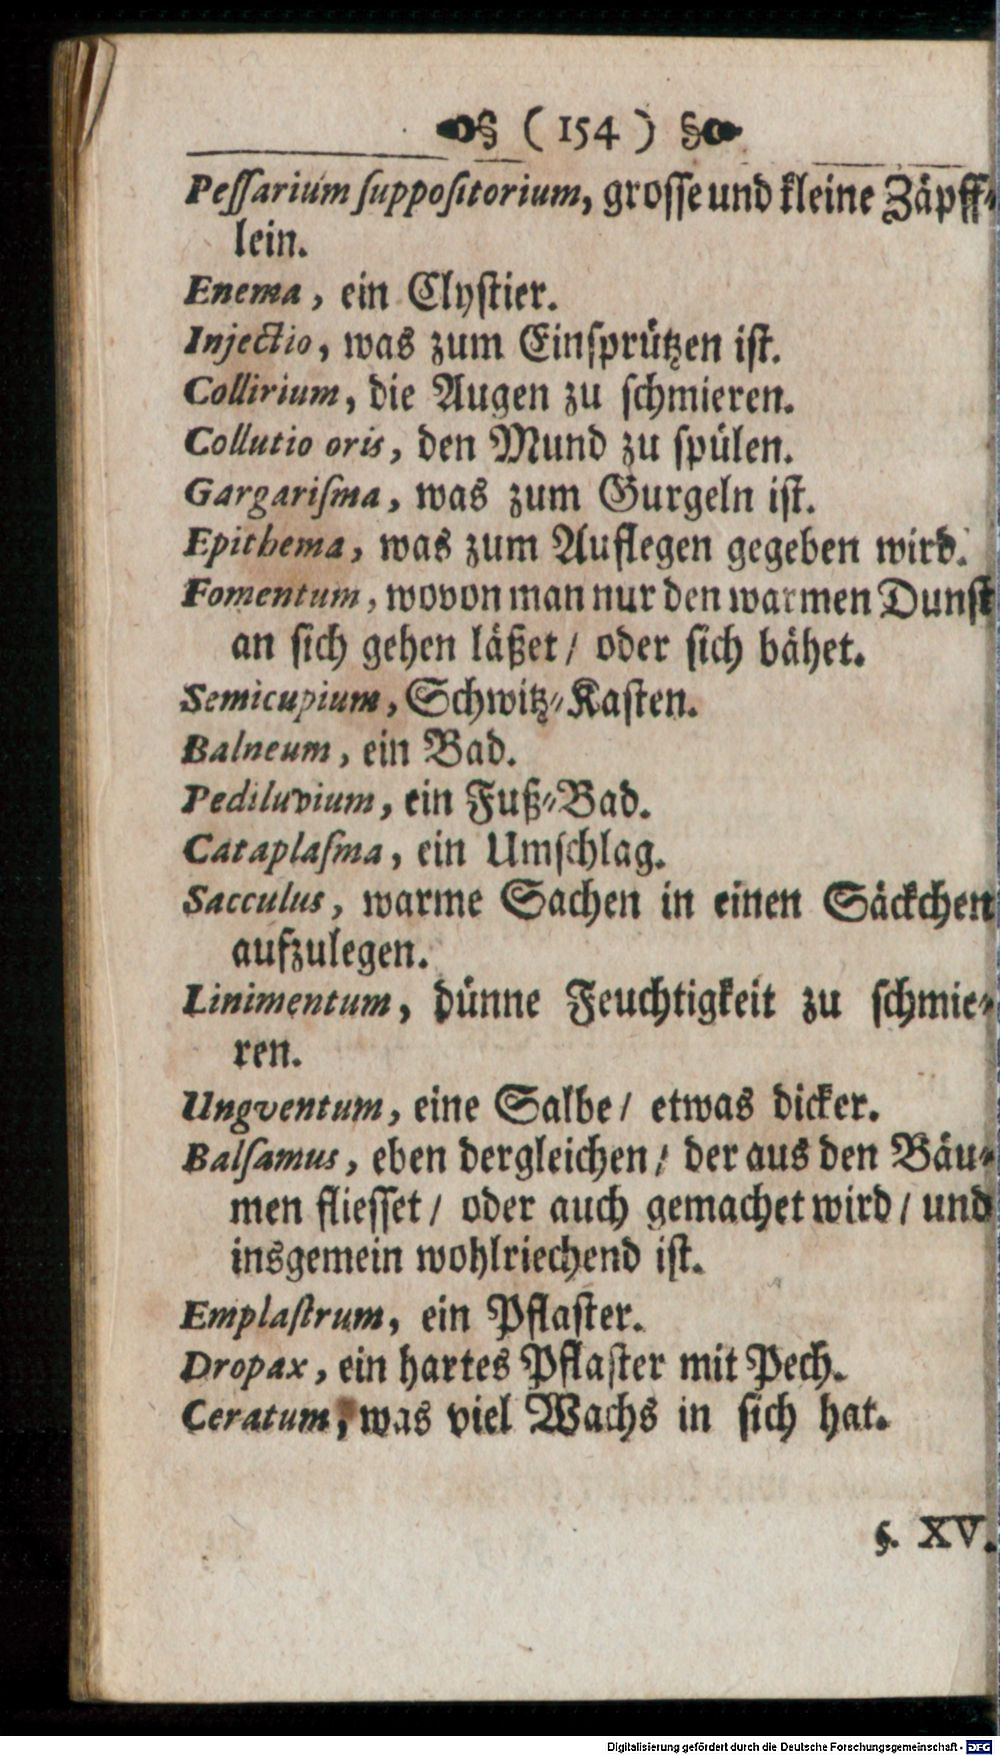 § ( 154 ) §
Peſſarium ſuppoſitorium, groſſe und kleine Zäpff-
lein.
Enema, ein Clyſtier.
Injectio, was zum Einſprützen iſt.
Collirium, die Augen zu ſchmieren.
Collutio oris, den Mund zu ſpülen.
Gargariſma, was zum Gurgeln iſt.
Epithema, was zum Auflegen gegeben wird.
Fomentum, wovon man nur den warmen Dunſt
an ſich gehen läßet/ oder ſich bähet.
Semicupium, Schwitz-Kaſten.
Balneum, ein Bad.
Pediluvium, ein Fuß-Bad.
Cataplaſma, ein Umſchlag.
Sacculus, warme Sachen in einen Säckchen
aufzulegen.
Linimentum, dünne Feuchtigkeit zu ſchmie-
ren.
Ungventum, eine Salbe/ etwas dicker.
Balſamus, eben dergleichen/ der aus den Bäu-
men flieſſet/ oder auch gemachet wird/ und
insgemein wohlriechend iſt.
Emplaſtrum, ein Pflaſter.
Dropax, ein hartes Pflaſter mit Pech.
Ceratum, was viel Wachs in ſich hat.
§. XV.
Digitalisierung gefördert durch die Deutsche Forschungsgemeinschaft - DFG